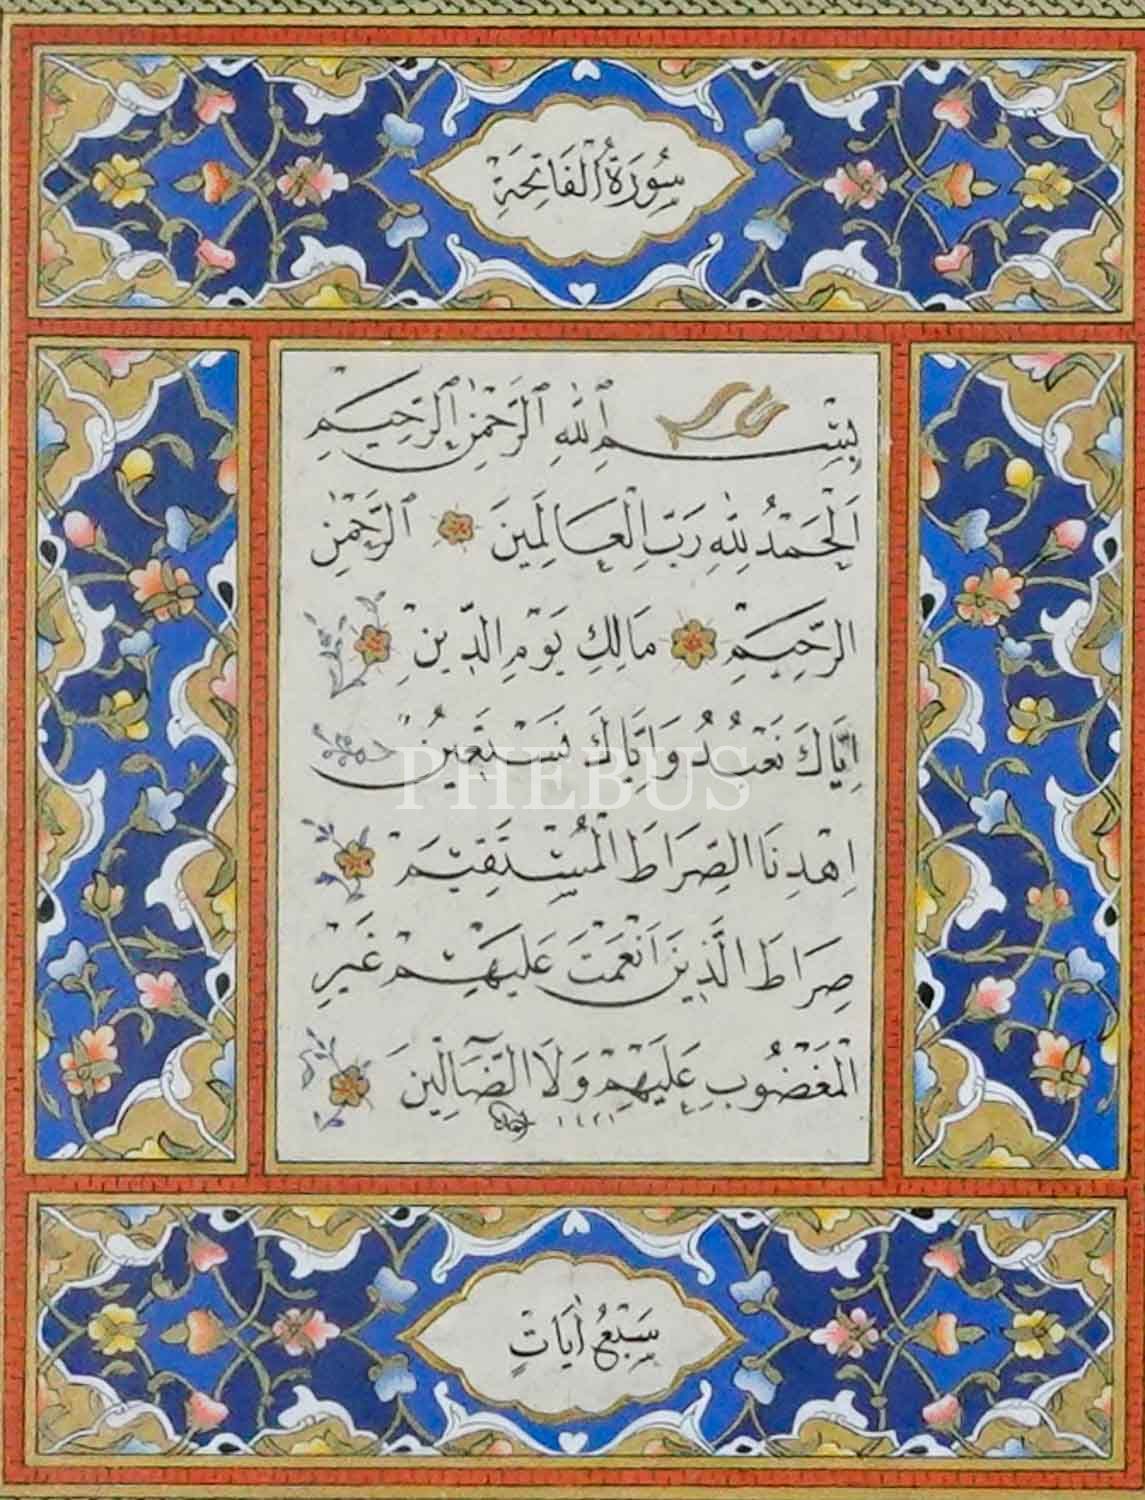 سُورَةُ الْفَاتِحَةِ
بِسْمِ اللهِ الرَّحْمٰنِ الرَّحِيمِ
اَلْحَمْدُ لِلهِ رَبِّ الْعَالَمِينَ الرَّحْمٰنِ
الرَّحِيمِ مَالِكِ يَوْمِ الدِّينِ
اِيَّاكَ نَعْبُدُ وَاِيَّاكَ نَسْتَعِينُ
PHEBUS
اِهْدِنَا الصِّرَاطَ الْمُسْتَقِيمَ
صِرَاطَ الَّذِينَ اَنْعَمْتَ عَلَيْهِمْ غَيْرِ
الْمَغْضُوبِ عَلَيْهِمْ وَلَا الضَّٓالِّينَ
١٤٢١
سَبْعُ اٰيَاتٍ